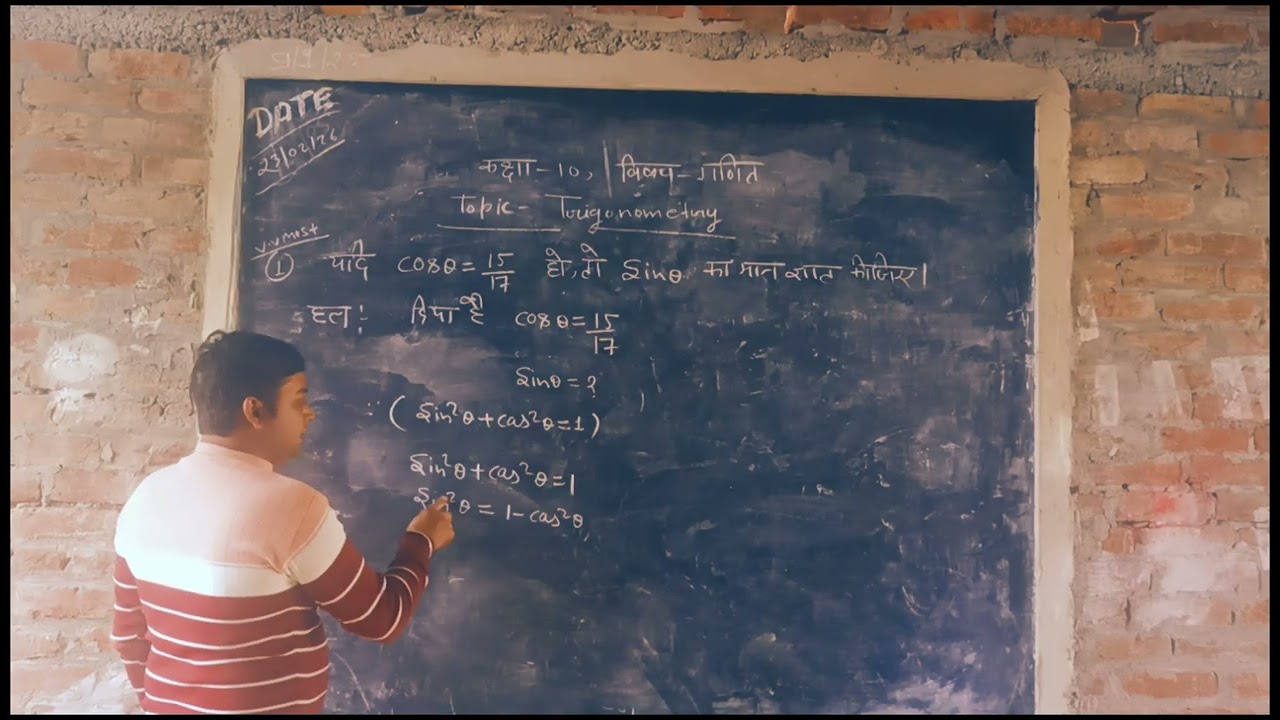 DATE
23/02/26
कक्षा - 10, | विषय - गणित
Topic - Trigonometry
V.V most
① यदि cosθ = 15/17 हो, तो Sinθ का मान ज्ञात कीजिए।
हल: दिया है cosθ = 15/17
Sinθ = ?
∵ ( Sin²θ + cos²θ = 1 )
Sin²θ + cos²θ = 1
Sin²θ = 1 - cos²θ